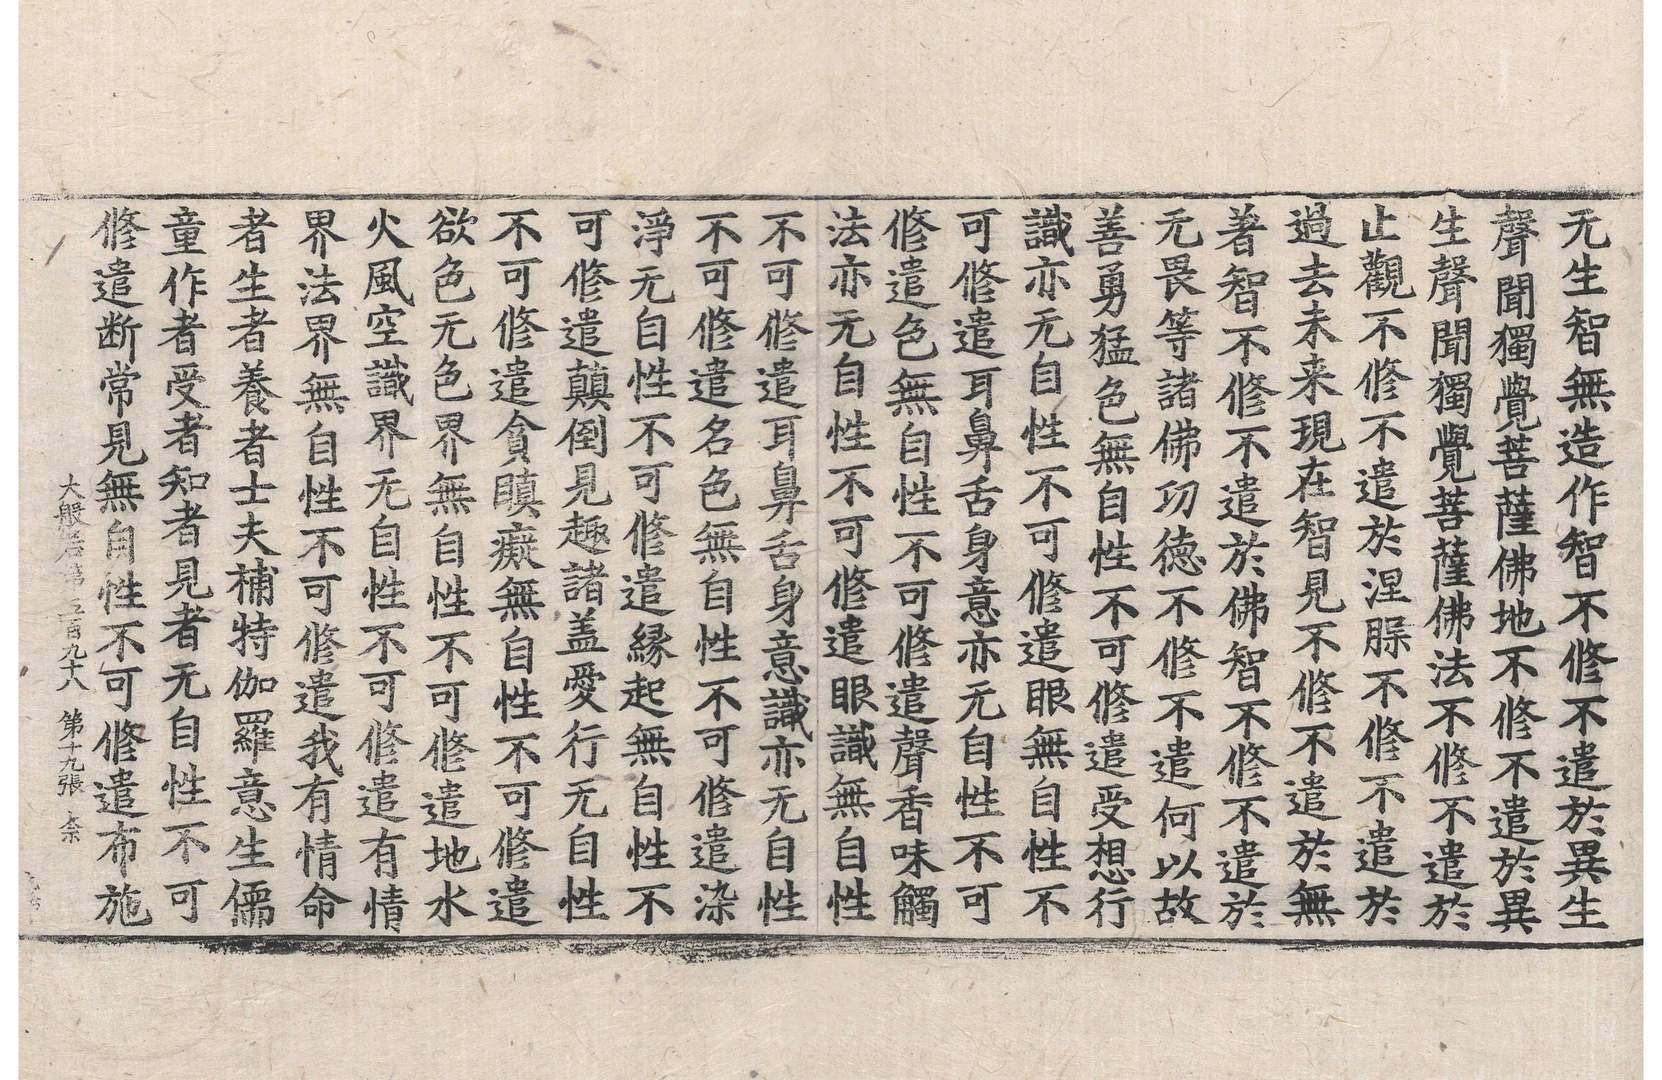 无生智無造作智不修不遣於異生
聲聞獨覺菩薩佛地不修不遣於異
生聲聞獨覺菩薩佛法不修不遣於
止觀不修不遣於涅脲不修不遣於
過去未来現在智見不修不遣於無
著智不修不遣於佛智不修不遣於
无畏等諸佛功德不修不遣何以故
善勇猛色無自性不可修遣受想行
識亦无自性不可修遣眼無自性不
可修遣耳鼻舌身意亦无自性不可
修遣色無自性不可修遣聲香味觸
法亦无自性不可修遣眼識無自性
不可修遣耳鼻舌身意識亦无自性
不可修遣名色無自性不可修遣染
淨无自性不可修遣縁起無自性不
可修遣顛倒見趣諸盖愛行无自性
不可修遣貪瞋癡無自性不可修遣
欲色无色界無自性不可修遣地水
火風空識界无自性不可修遣有情
界法界無自性不可修遣我有情命
者生者養者士夫補特伽羅意生儒
童作者受者知者見者无自性不可
修遣断常見無自性不可修遣布施
大般若第五百九十八 第十九張 柰